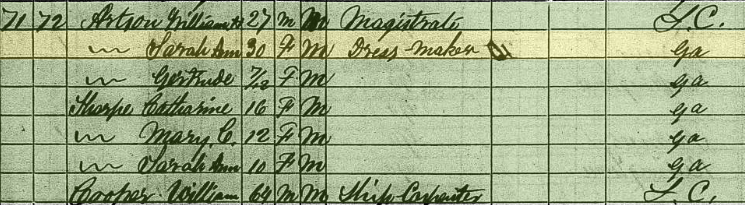 71 72 Artson William H 27 M M Magistrate S.C.
" Sarah Ann 30 F M Dress-maker Ga
" Gertrude 7/12 F M Ga
Tharpe Catharine 16 F M Ga
" Mary C. 12 F M Ga
" Sarah Ann 10 F M Ga
Cooper William 64 M M Ship Carpenter S.C.